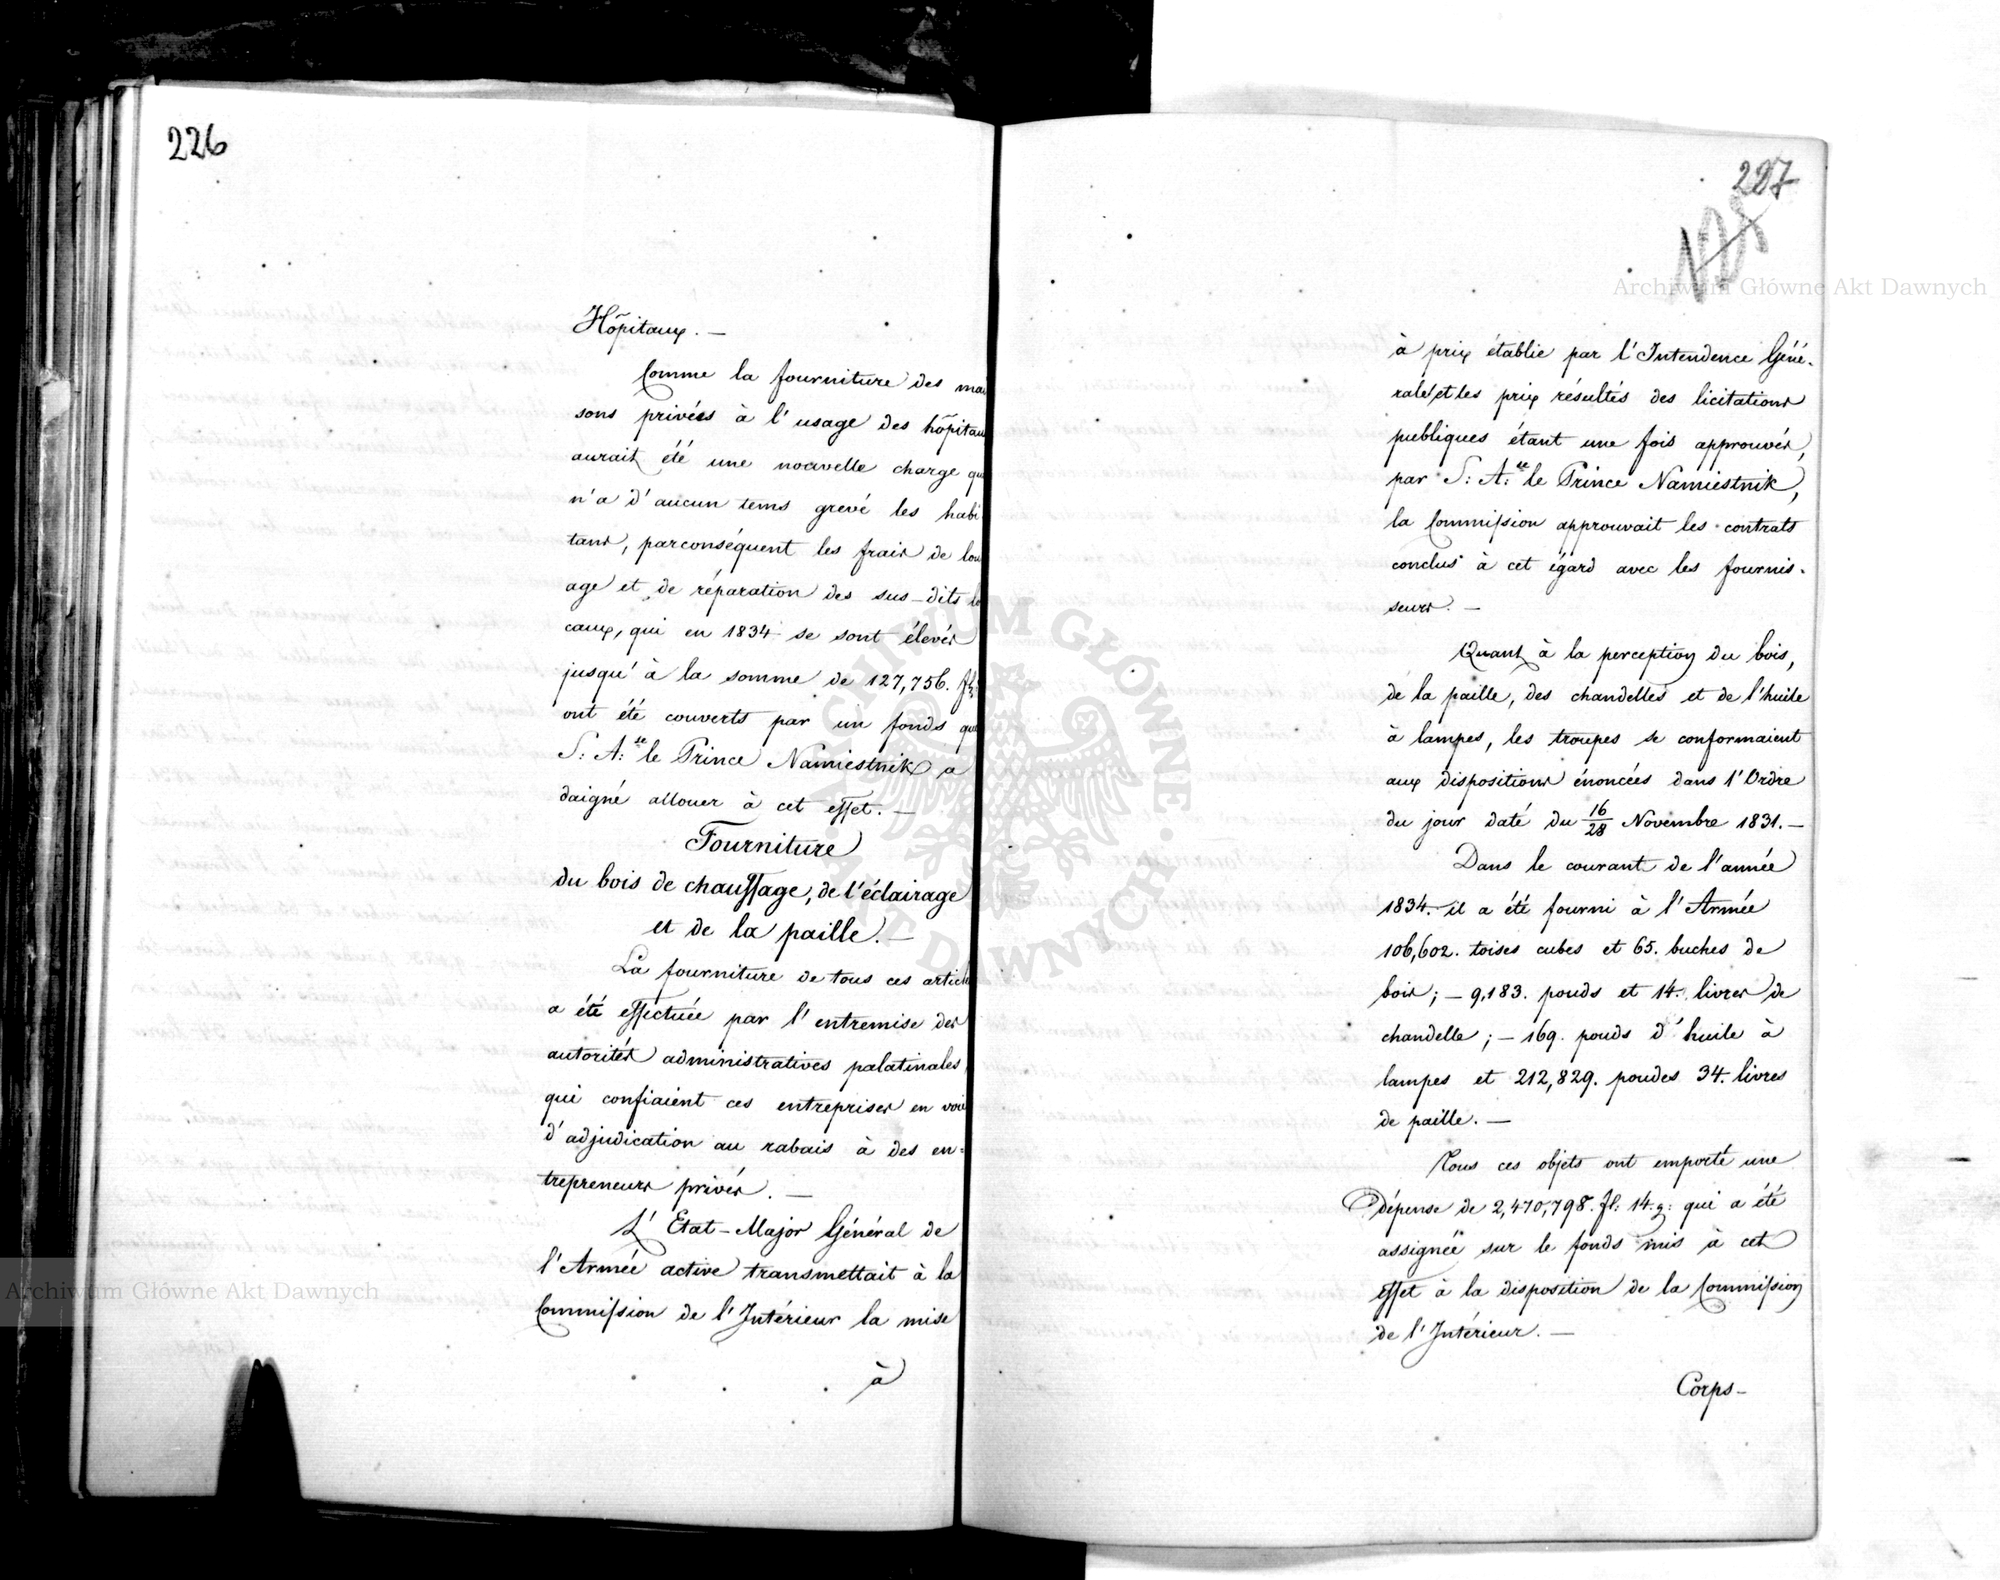 226
Hôpitaux. —
Comme la fourniture des mai
sons privées à l'usage des hôpitau
aurait été une nouvelle charge qu
n'a d'aucun tems grevé les habi
tans, parconséquent les frais de lou
age et de réparation des sus-dits lo
caux, qui en 1834 se sont élevés
jusqu'à la somme de 127,756. fl:
ont été couverts par un fonds que
S: A: se le Prince Namiestnik a
daigné allouer à cet effet. —
Fourniture
du bois de chauffage, de l'éclairage
et de la paille. —
La fourniture de tous ces article
a été effectuée par l'entremise des
autorités administratives palatinales,
qui confiaient ces entreprises en voie
d'adjudication au rabais à des en-
trepreneurs privés. —
L'Etat-Major Général de
l'Armée active transmettait à la
Commission de l'Intérieur la mise
à
227
128
à prix établie par l'Intendence Géné-
rale et les prix résultés des licitations
publiques étant une fois approuvés,
par S: A: se le Prince Namiestnik,
la Commission approuvait les contrats
conclus à cet égard avec les fournis-
seurs. —
Quant à la perception du bois,
de la paille, des chandelles et de l'huile
à lampes, les troupes se conformaient
aux dispositions énoncées dans l'Ordre
du jour daté du 16/28 Novembre 1831. —
Dans le courant de l'année
1834. il a été fourni à l'Armée
106,602. toises cubes et 65. buches de
bois; — 9,183. pouds et 14. livres de
chandelle; — 169. pouds d'huile à
lampes et 212,829. poudes 34. livres
de paille. —
Tous ces objets ont emporté une
dépense de 2,470,798. fl: 14. g: qui a été
assignée sur le fonds mis à cet
effet à la disposition de la Commission
de l'Intérieur. —
Corps-
Archiwum Główne Akt Dawnych
Archiwum Główne Akt Dawnych
ARCHIWUM GŁÓWNE · AKT DAWNYCH ·